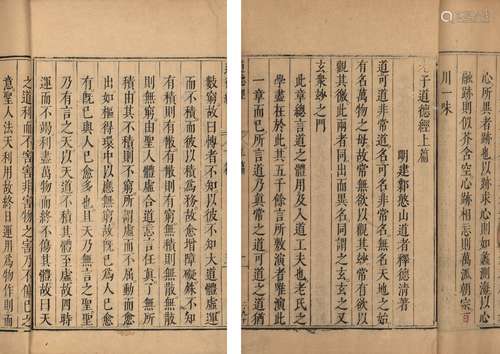 心所
如蠡測海以心
跡則似芥含空心跡相忘則萬派朝宗百
川一味
老子道德經上篇
明建鄴憨山道者釋德清著
道可道非常道名可名非常名無名天地之始
有名萬物之母故常無欲以觀其妙常有欲以
觀其徼此兩者同出而異名同謂之玄玄之又
玄衆妙之門
此章總言道之體用及入道工夫也老氏之
學盡在於此其五千餘言所敷演者唯演此
一章而已所言道乃真常之道可道之道猶
數窮故曰博者不知以彼不知大道體虛運
而不積而彼以積爲務故愈增障礙殊不知
有積則有散有散則有窮無積則無散無散
則無窮由聖人體虛合道忘言任真了無所
積由其不積則不窮所謂虛而不屈動而愈
出如樞得環中以應無窮故旣已爲人己愈
有旣已與人己愈多也且天乃無言之聖聖
乃有言之天以天道不積其體至虛故四時
運而不竭利盡萬物而不傷其體故曰天
之道利而不害害非害物之害乃不傷己之
意聖人法天利用故終日運用爲物作則而